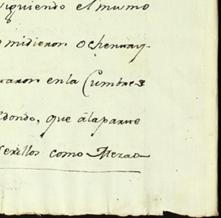 siguiendo el mismo
midieron ochenta y
en la Cumbre
dondo, que a la parte
Cerillos como Mezas